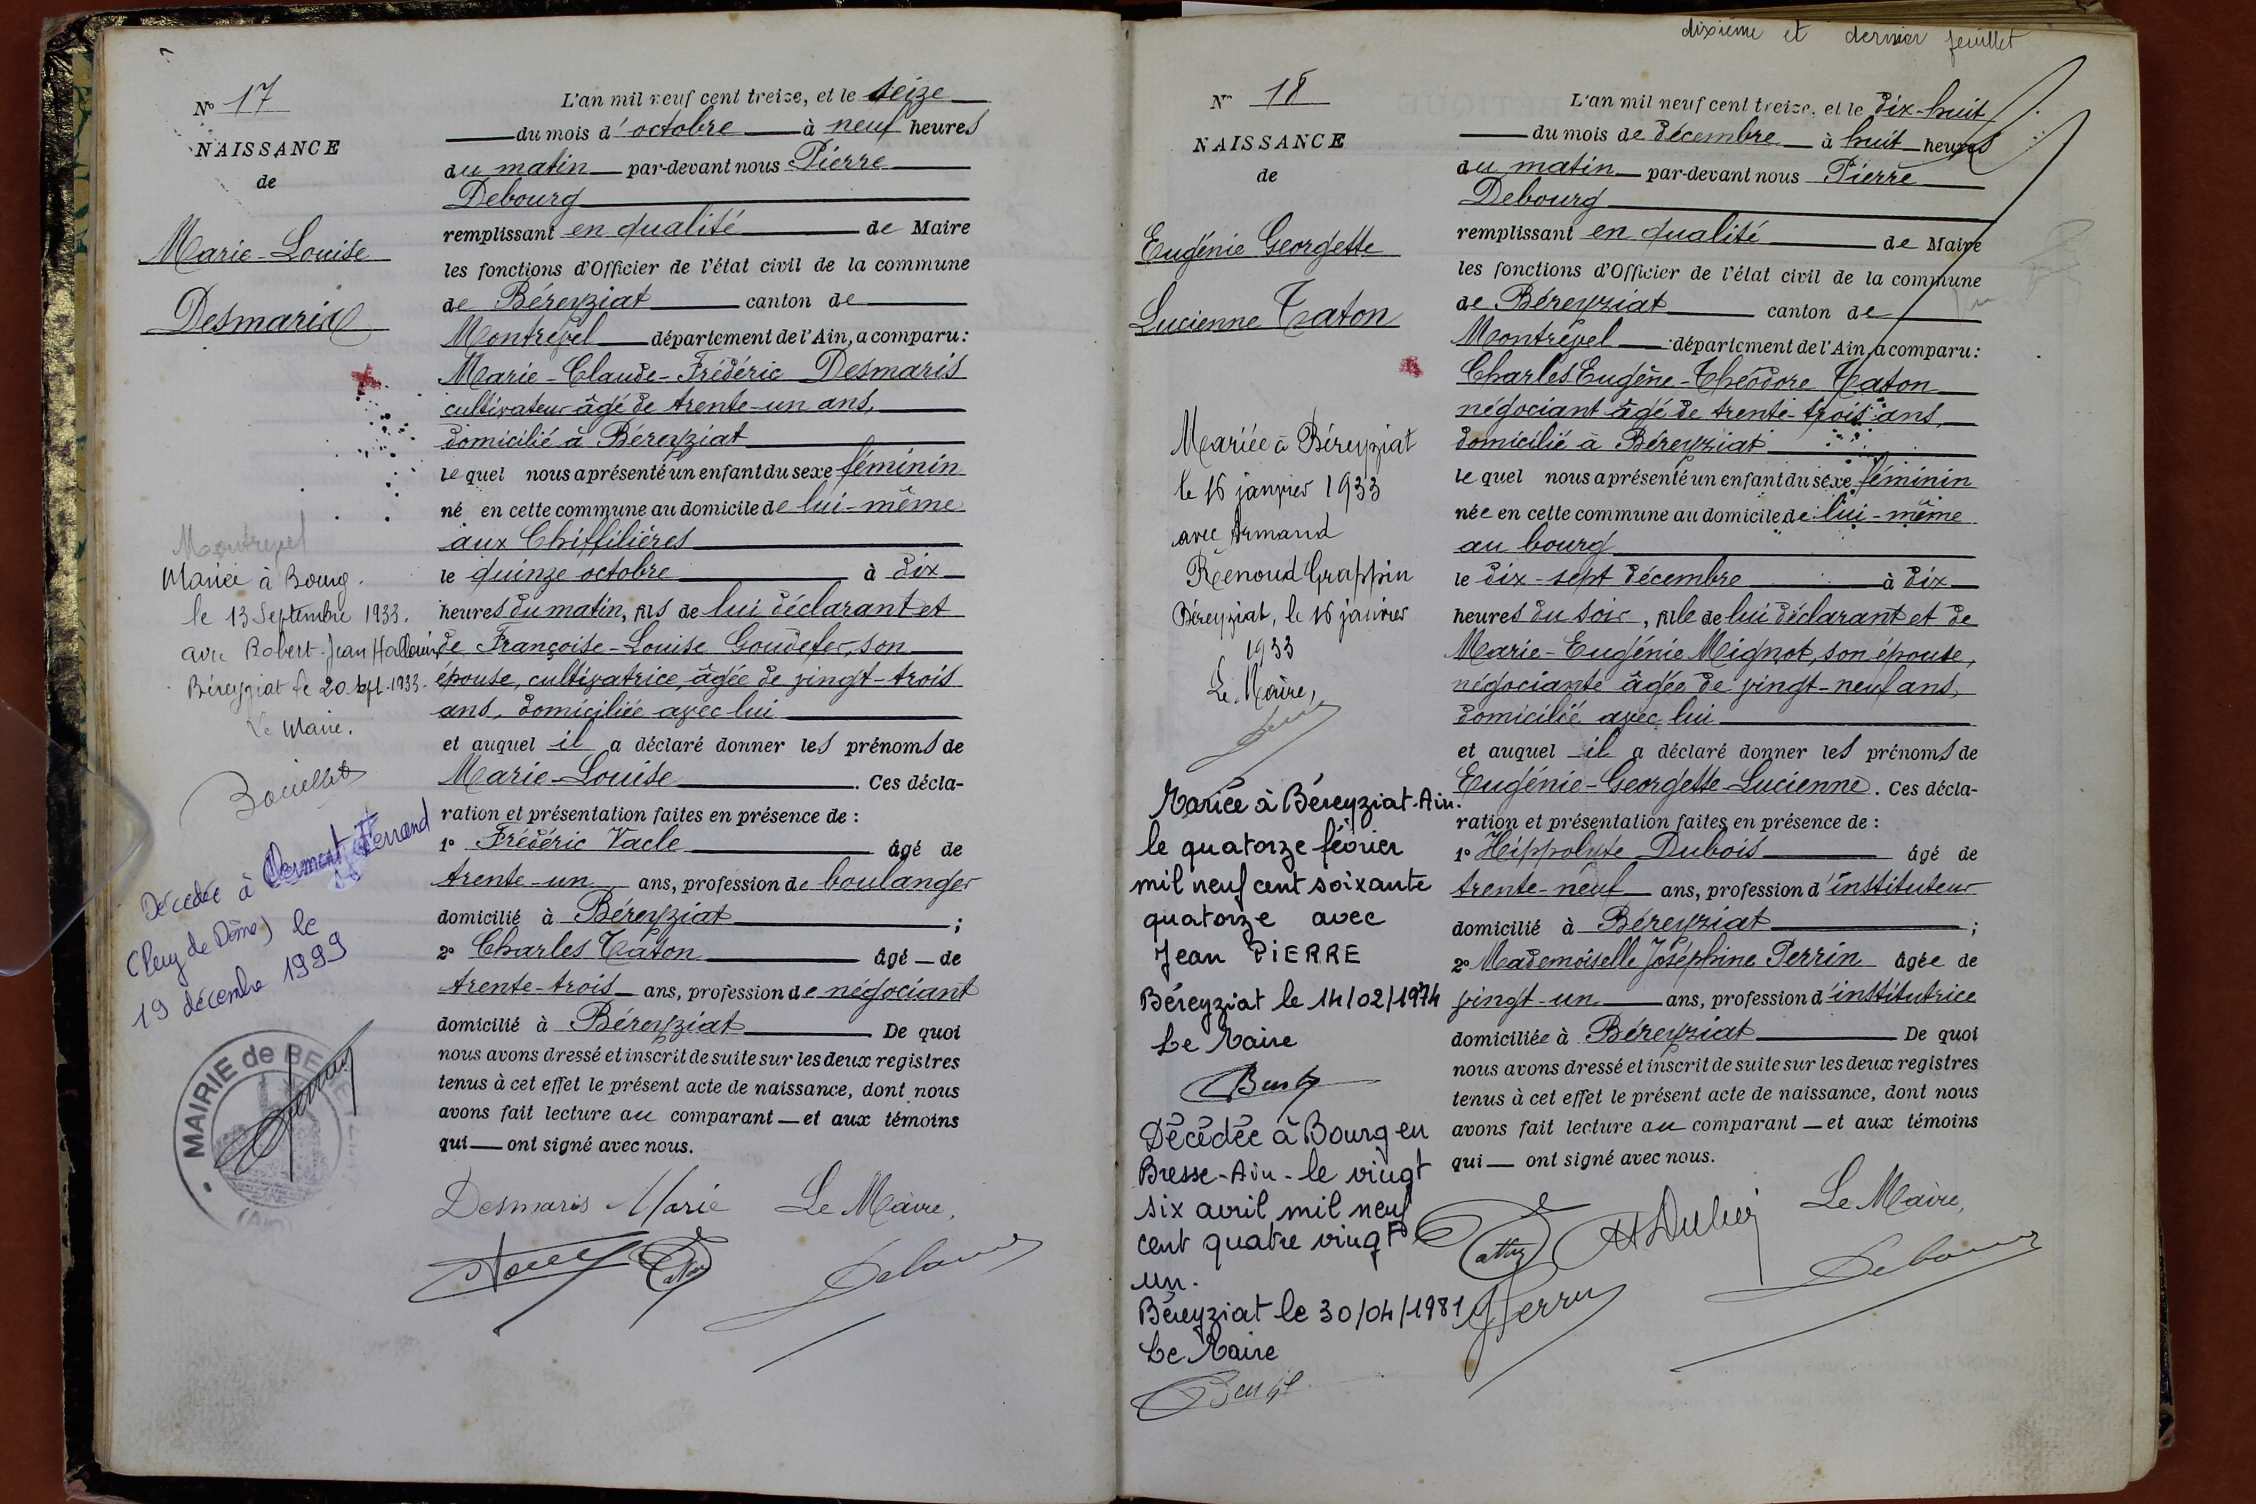 N° 17
NAISSANCE
de
Marie-Louise
Desmaris
Montrevel
Mariée à Bourg.
le 13 Septembre 1933.
avec Robert-Jean
Béreyziat le 20 sept. 1933.
Le Maire.
Décédée à Clermont Ferrand
(Puy de Dôme) le
19 décembre 1999
MAIRIE de
(Ain)
L'an mil neuf cent treize, et le seize
du mois d'octobre à neuf heures
du matin par-devant nous Pierre
Debourg
remplissant en qualité de Maire
les fonctions d'Officier de l'état civil de la commune
de Béreyziat canton de
Montrevel département de l'Ain, a comparu:
Marie-Claude-Frédéric Desmaris
cultivateur âgé de trente-un ans,
domicilié à Béreyziat
lequel nous a présenté un enfant du sexe féminin
né en cette commune au domicile de lui-même
aux Chiffilières
le quinze octobre à dix
heures du matin, fils de lui déclarant et
de Françoise-Louise son
épouse, cultivatrice, âgée de vingt-trois
ans, domiciliée avec lui
et auquel il a déclaré donner les prénoms de
Marie-Louise. Ces décla-
ration et présentation faites en présence de :
1° Frédéric Vacle âgé de
trente-un ans, profession de boulanger
domicilié à Béreyziat ;
2° Charles Caton âgé de
trente-trois ans, profession de négociant
domicilié à Béreyziat De quoi
nous avons dressé et inscrit de suite sur les deux registres
tenus à cet effet le présent acte de naissance, dont nous
avons fait lecture au comparant et aux témoins
qui ont signé avec nous.
Desmaris Marie Le Maire,
dixième et dernier feuillet
N° 18
NAISSANCE
de
Eugénie Georgette
Lucienne Caton
Mariée à Béreyziat
le 16 janvier 1933
avec Armand
Renoud Grappin
Béreyziat, le 16 janvier
1933
Le Maire,
Mariée à Béreyziat-Ain.
le quatorze février
mil neuf cent soixante
quatorze avec
Jean PIERRE
Béreyziat le 14/02/1974
Le Maire
Décédée à Bourg en
Bresse-Ain-le vingt
six avril mil neuf
cent quatre vingt
un.
Béreyziat le 30/04/1981
Le Maire
L'an mil neuf cent treize, et le dix-huit
du mois de décembre à huit heures
du matin par-devant nous Pierre
Debourg
remplissant en qualité de Maire
les fonctions d'Officier de l'état civil de la commune
de Béreyziat canton de
Montrevel département de l'Ain, a comparu:
Charles Eugène-Théodore Caton
négociant âgé de trente-trois ans,
domicilié à Béreyziat
lequel nous a présenté un enfant du sexe féminin
née en cette commune au domicile de lui-même
au bourg
le dix-sept décembre à dix
heures du soir, fille de lui déclarant et de
Marie-Eugénie Mignot, son épouse,
négociante âgée de vingt-neuf ans,
domicilié avec lui
et auquel il a déclaré donner les prénoms de
Eugénie-Georgette-Lucienne. Ces décla-
ration et présentation faites en présence de :
1° Hippolyte Dubois âgé de
trente-neuf ans, profession d'instituteur
domicilié à Béreyziat ;
2° Mademoiselle Joséphine Perrin âgée de
vingt-un ans, profession d'institutrice
domiciliée à Béreyziat De quoi
nous avons dressé et inscrit de suite sur les deux registres
tenus à cet effet le présent acte de naissance, dont nous
avons fait lecture au comparant et aux témoins
qui ont signé avec nous.
Le Maire,